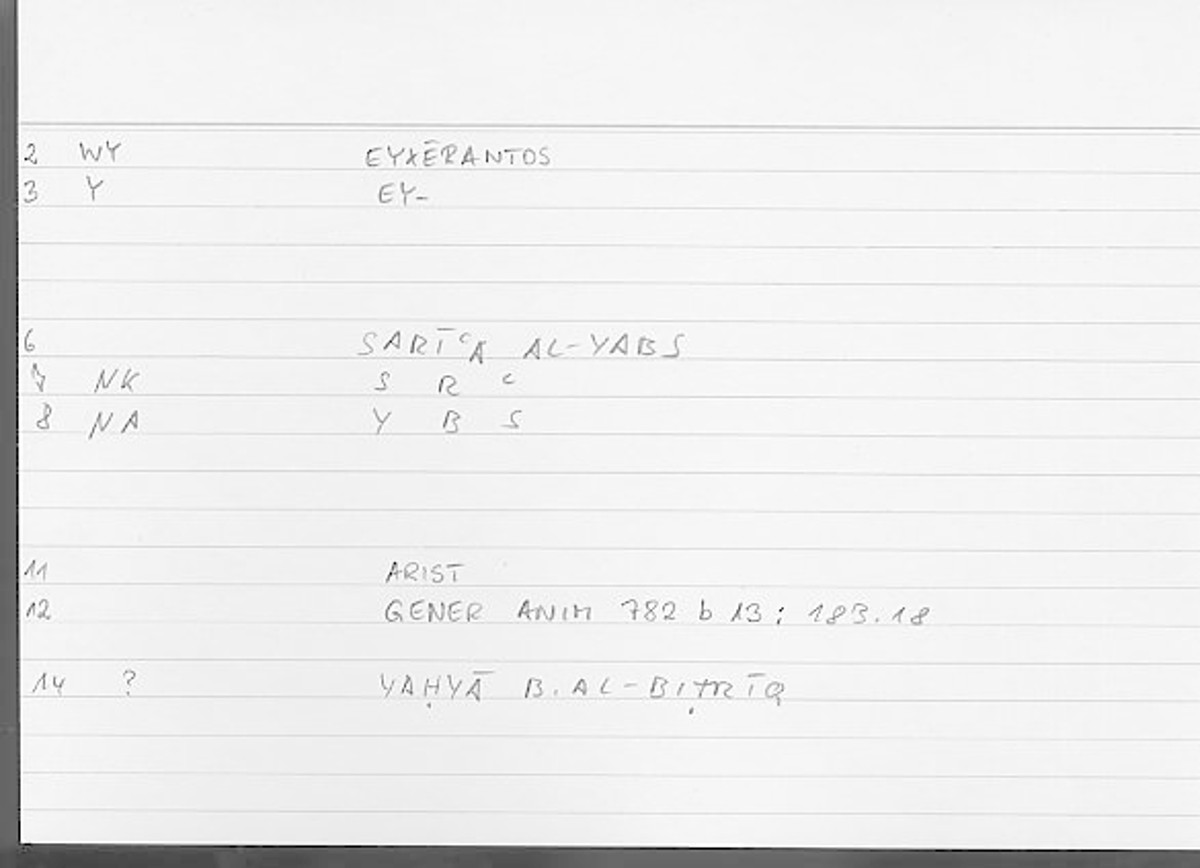 2 WY EYXĒRANTOS
3 Y EY-
6 SARĪʿA AL-YABS
7 NK S R ʿ
8 NA Y B S
11 ARIST
12 GENER ANIM 782 b 13 ; 183.18
14 ? YAḤYĀ B. AL-BIṬRĪQ